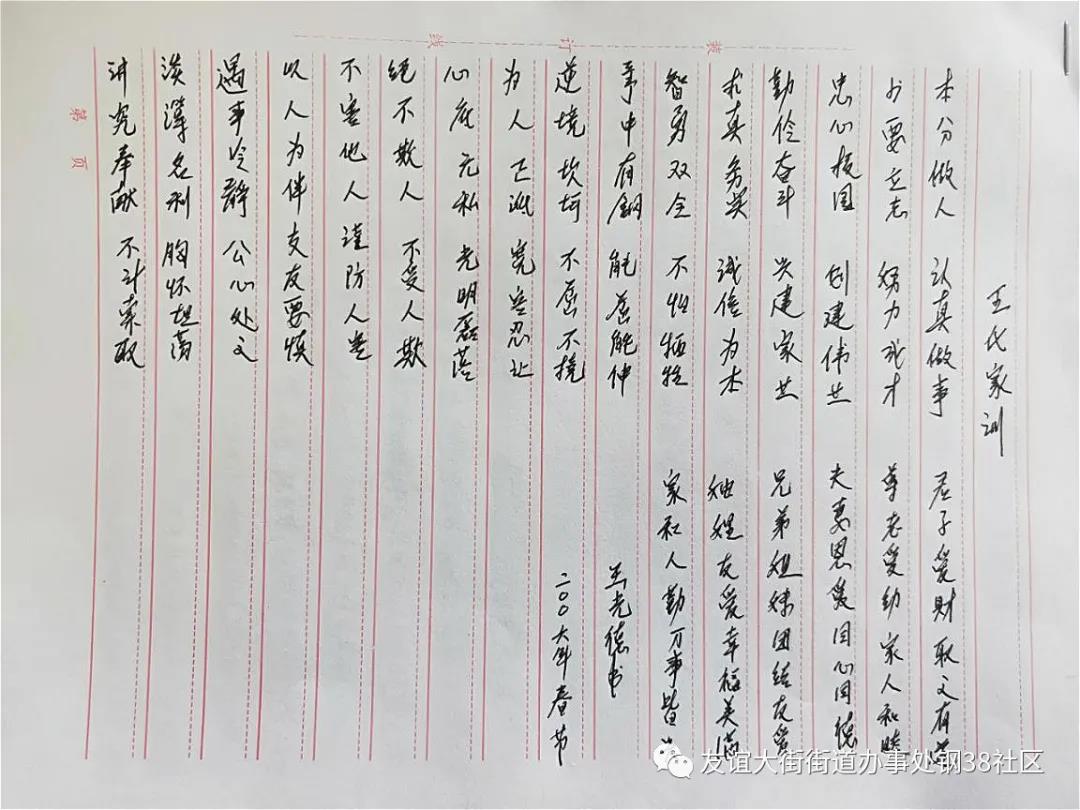 装订线
王氏家训
本分做人 认真做事
少要立志 努力成才
忠心报国 创建伟业
勤俭奋斗 兴建家业
求真务实 诚信为本
智勇双全 不怕牺牲
中有钢 能屈能伸
逆境坎坷 不屈不挠
为人正派 宽容忍让
心底无私 光明磊落
绝不欺人 不受人欺
不害他人 谨防人害
以人为伴 交友要慎
遇事冷静 公心处之
淡薄名利 胸怀坦荡
讲究奉献 不计索取
君子爱财 取之有道
尊老爱幼 家人和睦
夫妻恩爱 同心同德
兄弟姐妹 团结友爱
妯娌友爱 幸福美满
家和人勤 万事皆
王光德书
二00六年春节
第 页
友谊大街街道办事处钢38社区